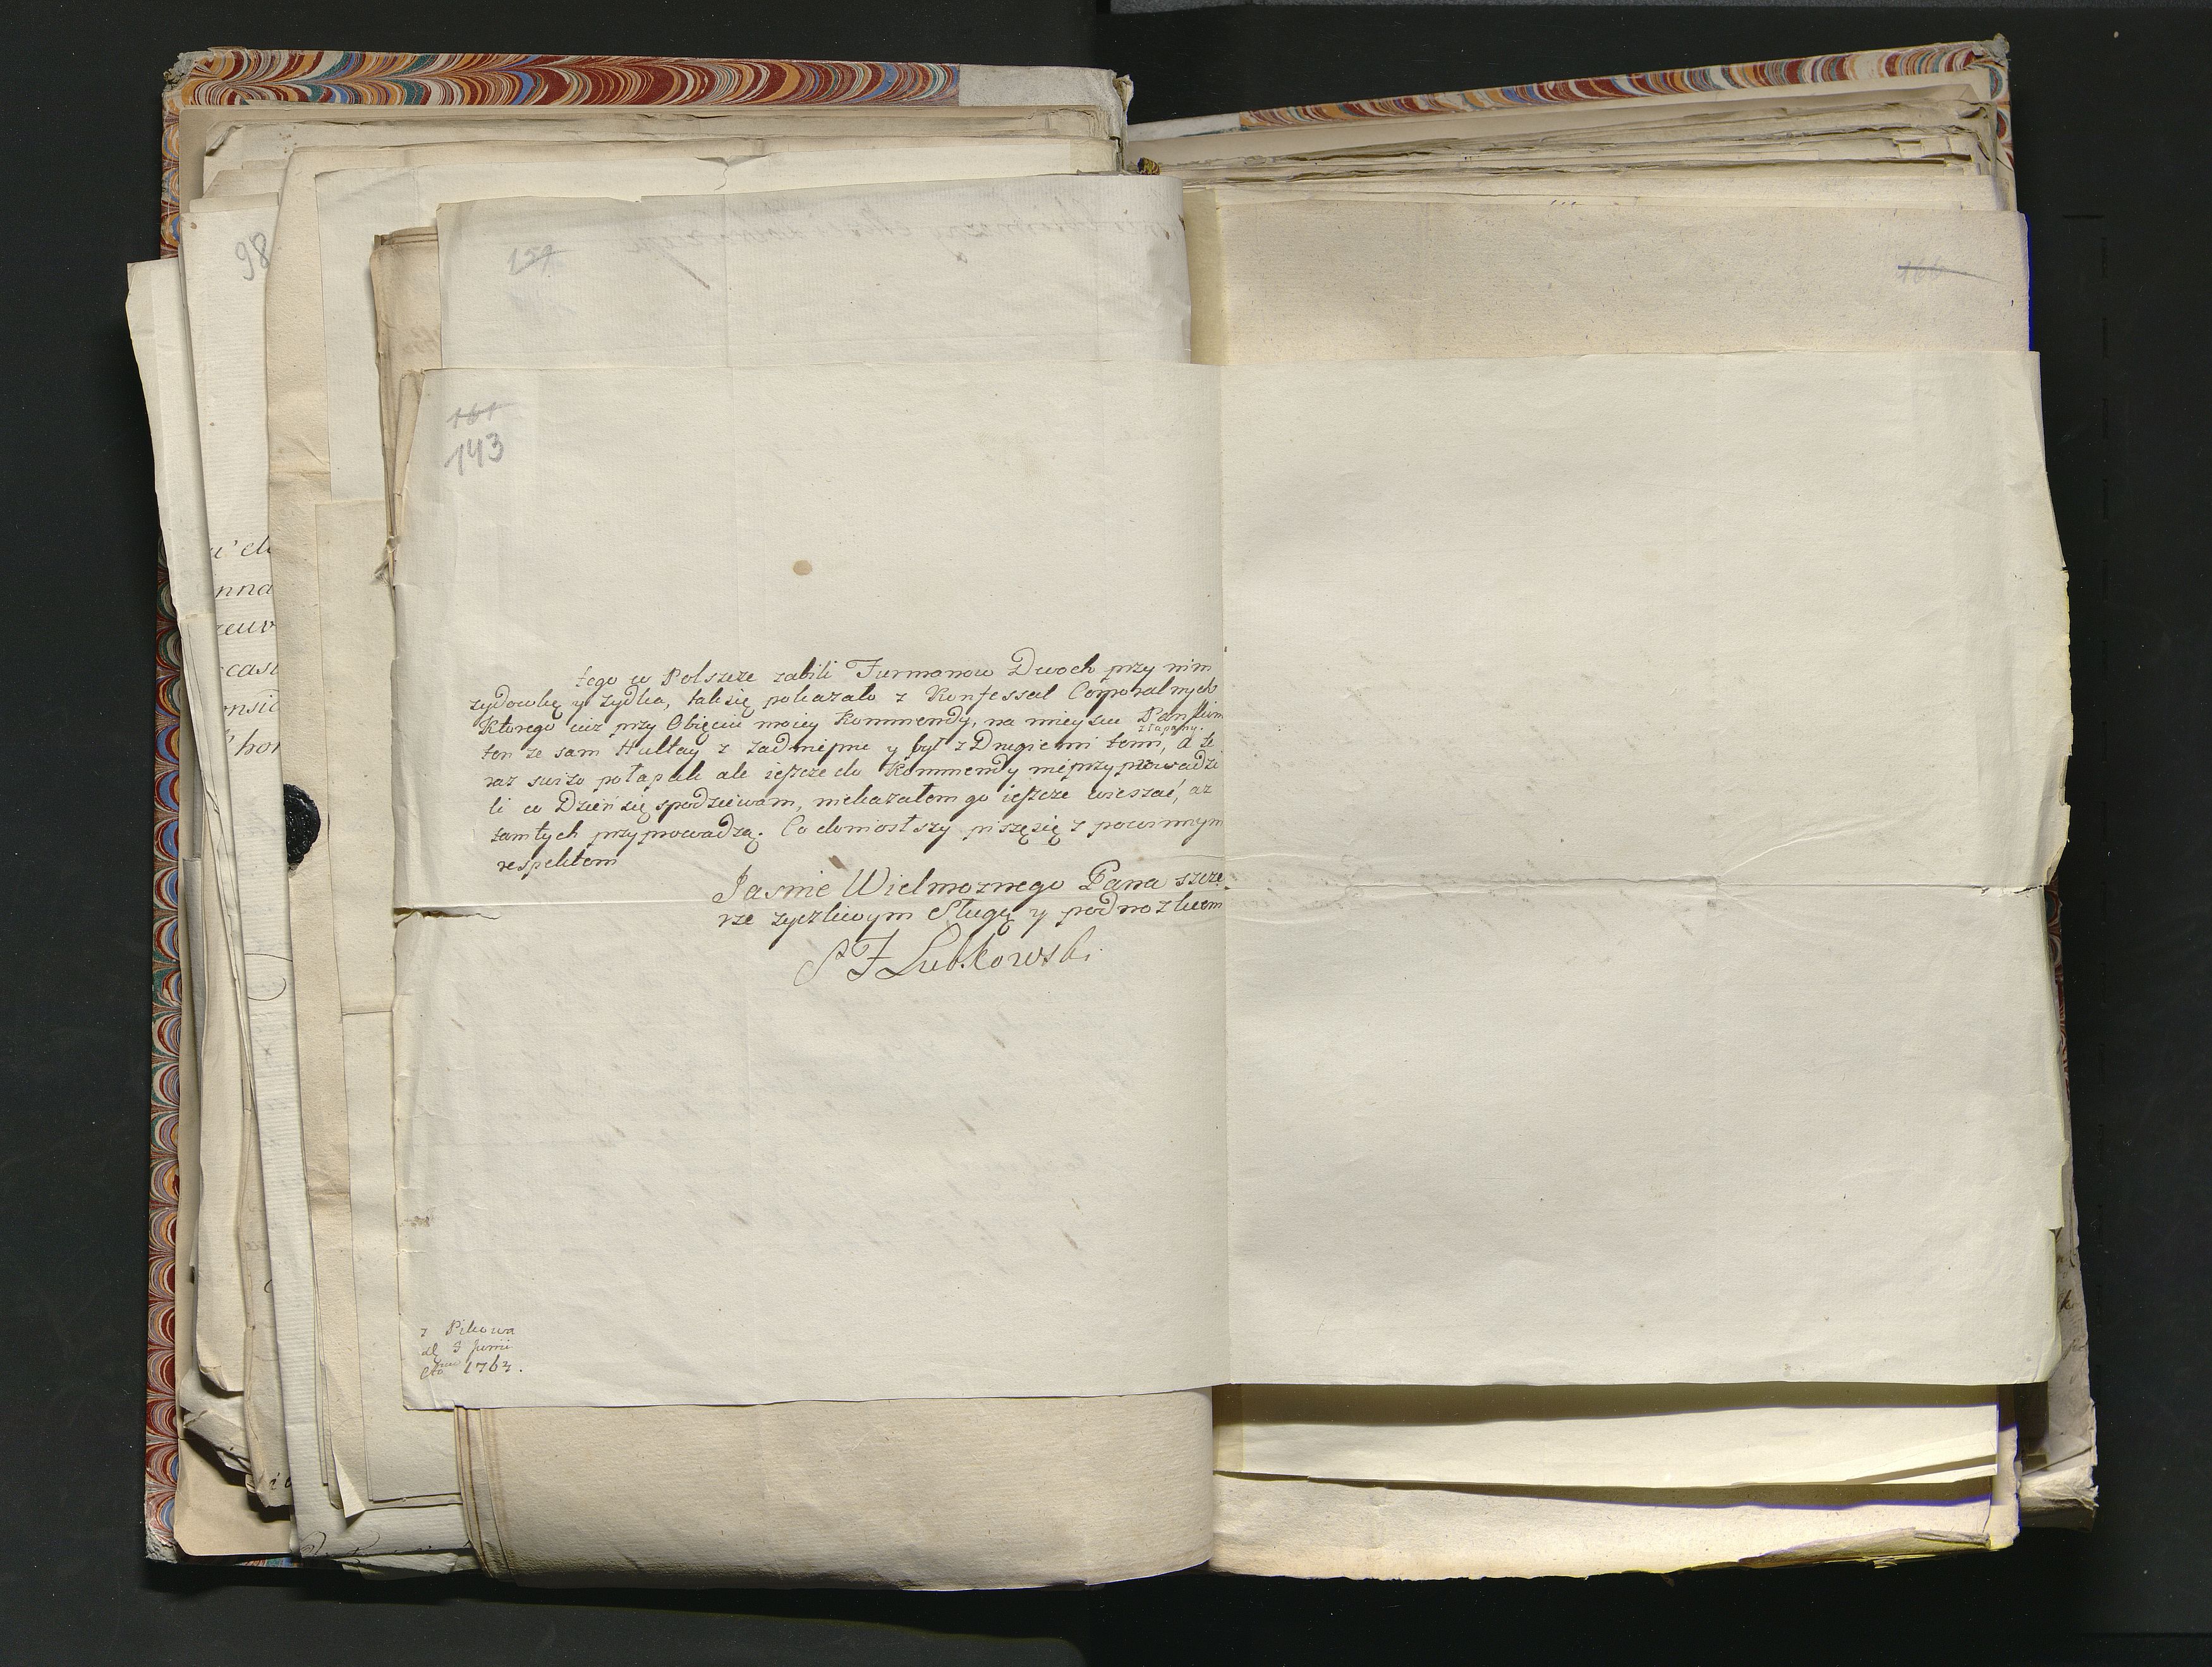 98
159
166
161
143
tego w Polszcze zabili Furmanow Dwoch przy nim
zydowkę y zydka, tak się pokazało z Konfessat Corporalnych
Ktorego iuz przy Obięciu moiey Kommendy, na mieyscu
złapany.
ten ze sam Hultay z zadniepru y był z Drugiemi temi, a te
raz swizo połapali ale ieszcze do Kommendy nieprzyprowadzi
li co Dzień się spodziewam, niekazałem go ieszcze wieszać, az
tamtych przyprowadzą. Co doniosłszy piszę się z powinnym
respektem
Jasnie Wielmoznego Pana szcze
rze zyczliwym Sługą y podnozkiem
S F Lubkowski
z Pikowa
d 3 Junii
1763.